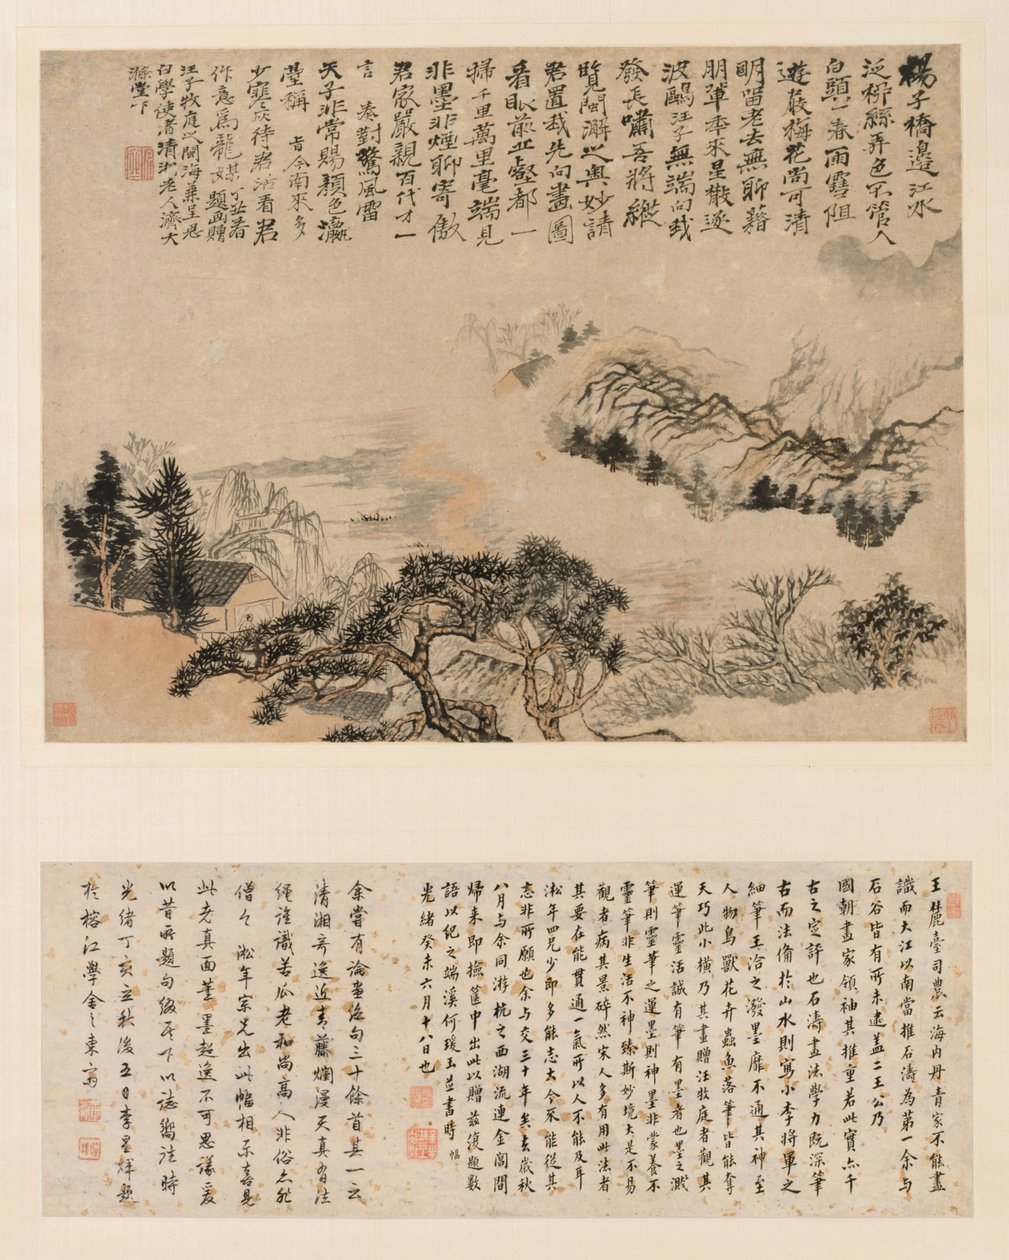 楊子橋邊江水
泛柳絲弄色不管人
白頭一春雨雪阻
遊嚴梅花尚可清
明留老去無聊藉
朋輩本來星散逐
波鷗汪子無端向我
發長嘯吾將縱
覽開瀚之奧妙請
君置我先向畫圖
看眼前丘壑都一
掃千里萬里毫端見
非墨非煙聊寄傲
君家嚴親百代才一
言奏對驚風雷
天子非常賜顏色瀛
臺稱旨今南來多
少寒灰待君活看君
作意為龍媒
題畫贈
汪子牧庭之閩海兼呈思
白學使者清湘老人濟大
滌堂下
王麓臺司農云海內丹青家不能盡
識而大江以南當推石濤為第一余與
石谷皆有所未逮蓋二王公乃
國朝畫家領袖其推重若此實亦千
古之定評也石濤畫法學力既深筆
古而法備於山水則寫小李將軍之
細筆王洽之潑墨靡不通其神至
人物鳥獸花卉蟲魚落筆皆能奪
天巧此小橫乃其畫贈汪牧庭者觀其
運筆靈活誠有筆有墨者也墨之濺
筆則靈筆之運墨則神墨非蒙養不
靈筆非生活不神臻斯妙境大是不易
觀者病其景碎然宋人多有用此法者
其要在能貫通一氣所以人不能及耳
淞年四兄少即多能志大今來能從其
志非所願也余與交三十年矣去歲秋
八月與余同游杭之西湖流連金閶間
歸來即撿篋中出此以贈茲復題數
語以紀之端溪何瑗玉並書時
光緒癸未六月十八日也
余嘗有論畫絕句三十餘首其一云
清湘奇逸近青藤爛漫天真有法
繩誰識苦瓜老和尚高人非俗亦非
僧々淞年宗兄出此幅相示喜見
此老真面筆墨超逸不可思議爰
以昔所題句綴於下以誌嚮往時
光緒丁亥立秋後五日李星輝題
於榕江學舍之東齋